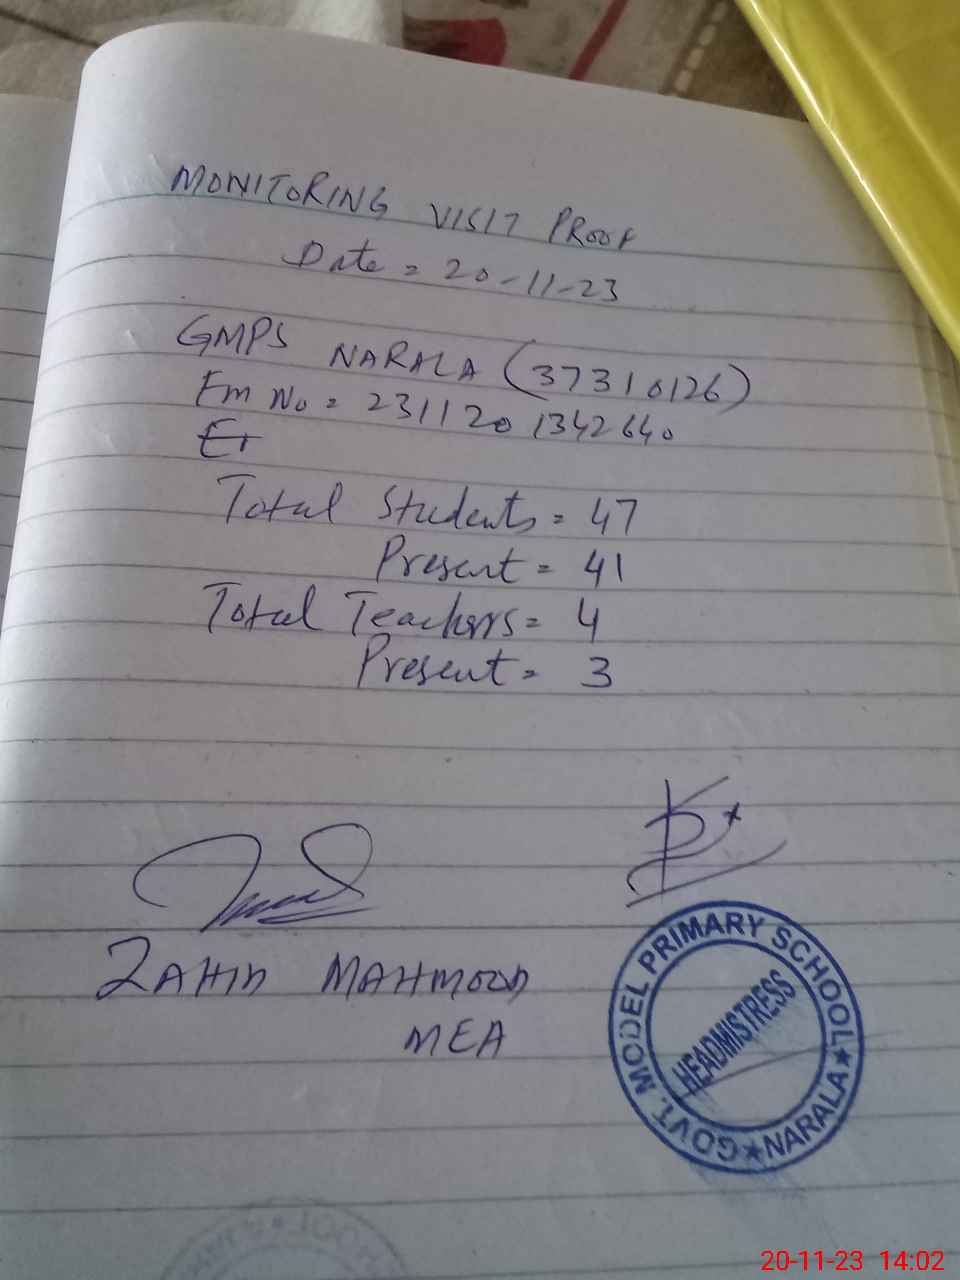 MONITORING VISIT PROOF
Date = 20-11-23
GMPS NARALA (37310126)
Em No = 231120 1342640
Total Students = 47
Present = 41
Total Teachers = 4
Present = 3
ZAHID MAHMOOD
MEA
GOVT. MODEL PRIMARY SCHOOL
★ NARALA ★
HEADMISTRESS
20-11-23 14:02